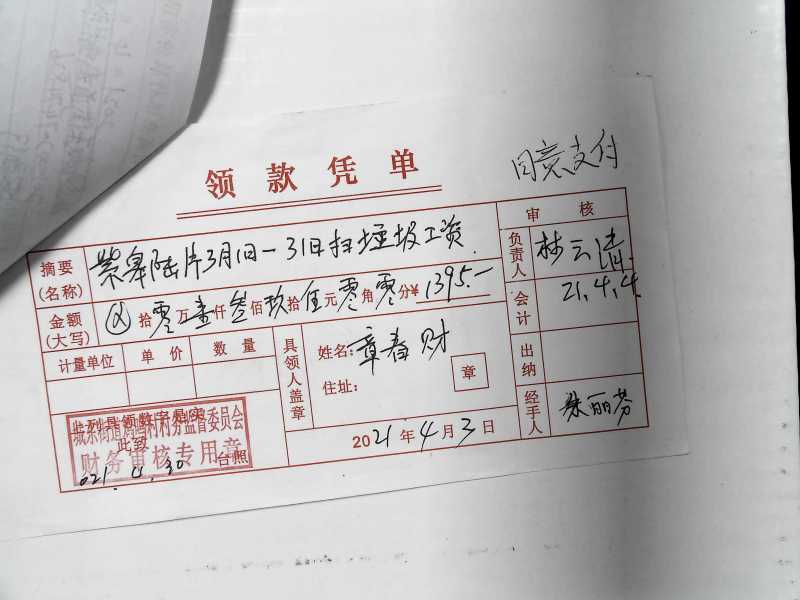 领款凭单
同意支付
摘要(名称) 紫皋陆片3月1日-31日扫垃圾工资
金额(大写) ⊗拾零万壹仟叁佰玖拾伍元零角零分¥1395.-
计量单位 单价 数量
具领人盖章 姓名:章春财
住址: 章
2021年4月3日
审核
负责人 林云清
会计 21.4.4.
出纳
经手人 朱丽芬
上列具领数字相符
此致
台照
村务监督委员会
财务审核专用章
021.4.30